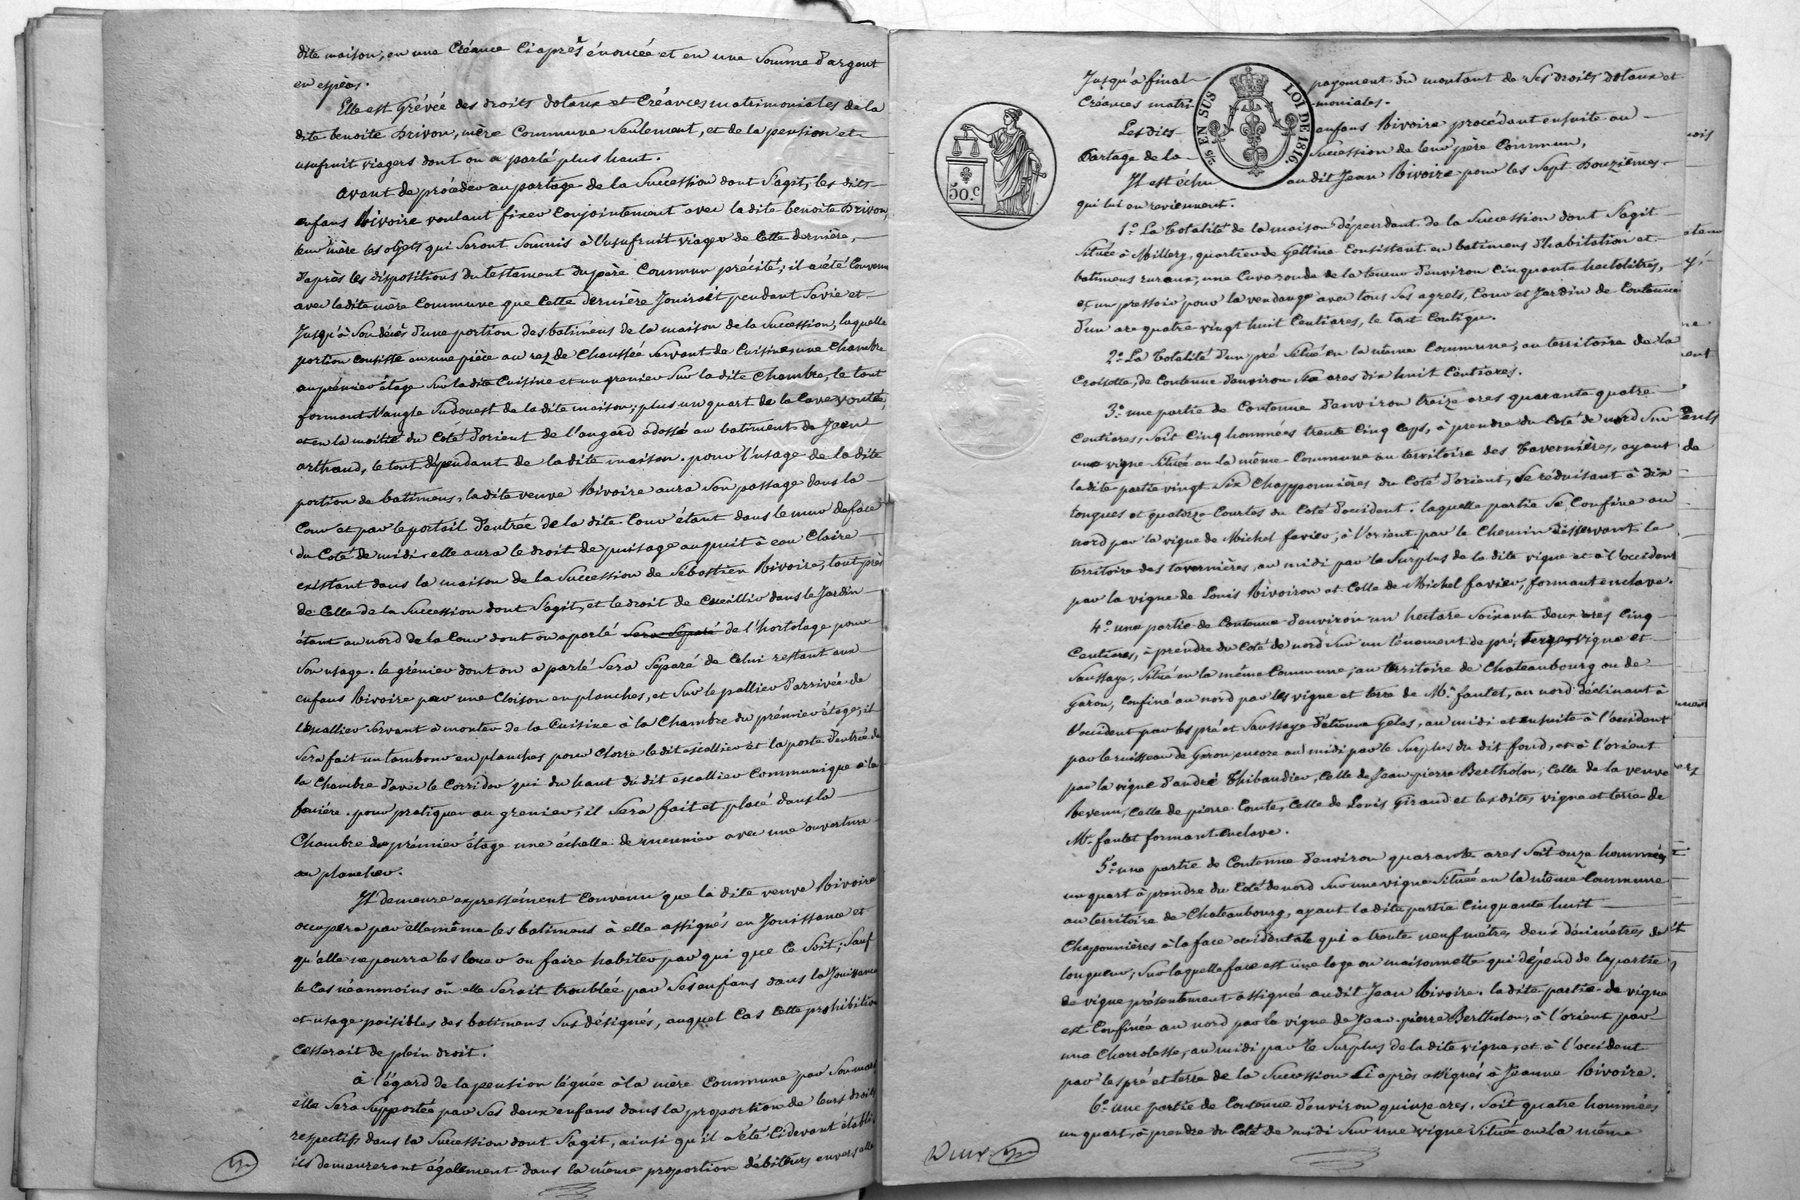 dite maison, en une Créance Ciaprès énoncée et en une Somme d'argent
en espèces.
Elle est Grévée des droits dotaux et Créances matrimoniales de la
dite benoite Drivon, mère Commune Seulement, et de la pension et
usufruit viagers dont on a parlé plus haut.
Avant de procéder au partage de la Succession dont S'agit, les dits
enfans Rivoire voulant fixer Conjointement avec la dite benoite Drivon
leur mère les objets qui Seront Soumis à l'usufruit viager de Cette dernière,
d'après les dispositions du testament du père Commun précité; il a été Convenu
avec la dite mère Commune que Cette dernière Jouiroit pendant Sa vie et
Jusqu'à Son décès d'une portion des batimens de la maison de la Succession, laquelle
portion Consiste en une pièce au rez de Chaussée Servant de Cuisine, une Chambre
au prémier étage Sur la dite Cuisine et un grenier Sur la dite Chambre, le tout
formant l'angle Sudouest de la dite maison; plus un quart de la Cave voutée,
et en la moitié du Coté d'orient de l'angard adossé au batiment de Jean
arthaud, le tout dépendant de la dite maison. pour l'usage de la dite
portion de batimens, la dite veuve Rivoire aura Son passage dans la
Cour et par le portail d'entrée de la dite Cour étant dans le mur de face
du Coté de midi. elle aura le droit de puisage au puit à eau Claire
existant dans la maison de la Succession de Sébastien Rivoire, tout près
de Celle de la Succession dont S'agit, et le droit de Cueillir dans le Jardin
étant au nord de la Cour dont on a parlé Sera Séparé de l'hortolage pour
Son usage. le grénier dont on a parlé Sera Séparé de Celui restant aux
enfans Rivoire par une Cloison en planches, et Sur le pallier d'arrivée de
l'escallier Servant à monter de la Cuisine à la Chambre du prémier étage, il
Sera fait un tambour en planches pour Clorre le dit escallier et la porte d'entrée de
la Chambre d'avec le Corridor qui du haut du dit escallier Communique à la
fenière. pour pratiquer au grenier, il Sera fait et placé dans la
Chambre du prémier étage une échelle de meunier avec une ouverture
au plancher.
Il demeure expressément Convenu que la dite veuve Rivoire
occupera par ellemême les batimens à elle assignés en Jouissance et
qu'elle ne pourra les louer ou faire habiter par qui que Ce Soit; Sauf
le Cas néanmoins où elle Serait troublée par Ses enfans dans la Jouissance
et usage paisibles des batimens Sus désignés, auquel Cas Cette prohibition
Cesserait de plein droit.
à l'égard de la pension léguée à la mère Commune par Son mari
elle Sera Supportée par Ses deux enfans dans la proportion de leurs droits
respectifs dans la Succession dont S'agit, ainsi qu'il a été Cidevant établi,
ils demeureront également dans la même proportion débiteurs envers elle
Jusqu'à final payement du montant de Ses droits dotaux et
Créances matrimoniales.
Les dits enfans Rivoire procédant ensuite au
Partage de la Succession de leur père Commun,
Il est échu audit Jean Rivoire pour les Sept Douzièmes
qui lui en reviennent.
EN SUS LOI DE 1816.
50.c
1.° La Totalité de la maison dépendant de la Succession dont S'agit
Située à Millery, quartier de Gettina Consistent en batimens d'habitation et
batimens ruraux; une Cuve ronde de la teneur d'environ Cinquante hectolitres,
et un pressoir pour la vendange avec tous Ses agrets, Cour et Jardin de Contenue
d'un are quatre vingt huit Centiares, le tout Contigu.
2.° La Totalité d'un pré Situé en la même Commune, au territoire de la
Croisette, de Contenue d'environ Six ares dix huit Centiares.
3.° une partie de Contenue d'environ treize ares quarante quatre
Centiares, Soit Cinq hommées trente Cinq Ceps, à prendre du Coté de nord Sur
une vigne Située en la même Commune au territoire des Tavernières, ayant
la dite partie vingt Six Chapponnières du Coté d'orient, Se réduisant à dix
longues et quatorze Courtes du Coté d'occident. laquelle partie Se Confine au
nord par la vigne de Michel favier, à l'orient par le Chemin desservant le
territoire des tavernières, au midi par le Surplus de la dite vigne et à l'occident
par la vigne de Louis Rivoiron et Celle de Michel favier, formant enclave.
4.° une partie de Contenue d'environ un hectare Soixante deux ares Cinq
Centiares, à prendre du Coté de nord Sur un ténement de pré, Terre, vigne et
Saussaye, Situé en la même Commune, au territoire de Chateaubourg ou de
Garon, Confiné au nord par les vigne et terre de M. faulet, au nord déclinant à
l'occident par les pré et Saussaye d'étienne Gelas, au midi et ensuite à l'occident
par le ruisseau de Garon, encore au midi par le Surplus du dit fond, et à l'orient
par la vigne d'andré Thibaudier, Celle de Jean pierre Bertholon, Celle de la veuve
Revenu, Celle de pierre Comte, Celle de Louis Giraud et les dites vigne et terre de
M. faulet formant enclave.
5.° une partie de Contenue d'environ quarante ares Soit onze hommées
un quart à prendre du Coté de nord Sur une vigne Située en la même Commune
au territoire de Chateaubourg, ayant la dite partie Cinquante huit
Chaponnières à la face occidentale qui a trente neuf mètres deux décimètres de
longueur, Sur laquelle face est une loge ou maisonnette qui dépend de la partie
de vigne présentement assignée audit Jean Rivoire. la dite partie de vigne
est Confinée au nord par la vigne de Jean-pierre Bertholon, à l'orient par
une Charrolesse, au midi par le Surplus de la dite vigne, et à l'occident
par les pré et terre de la Succession Ci après assignés à Jeanne Rivoire.
6.° une partie de Contenue d'environ quinze ares, Soit quatre hommées
un quart, à prendre du Coté de midi Sur une vigne Située en la même